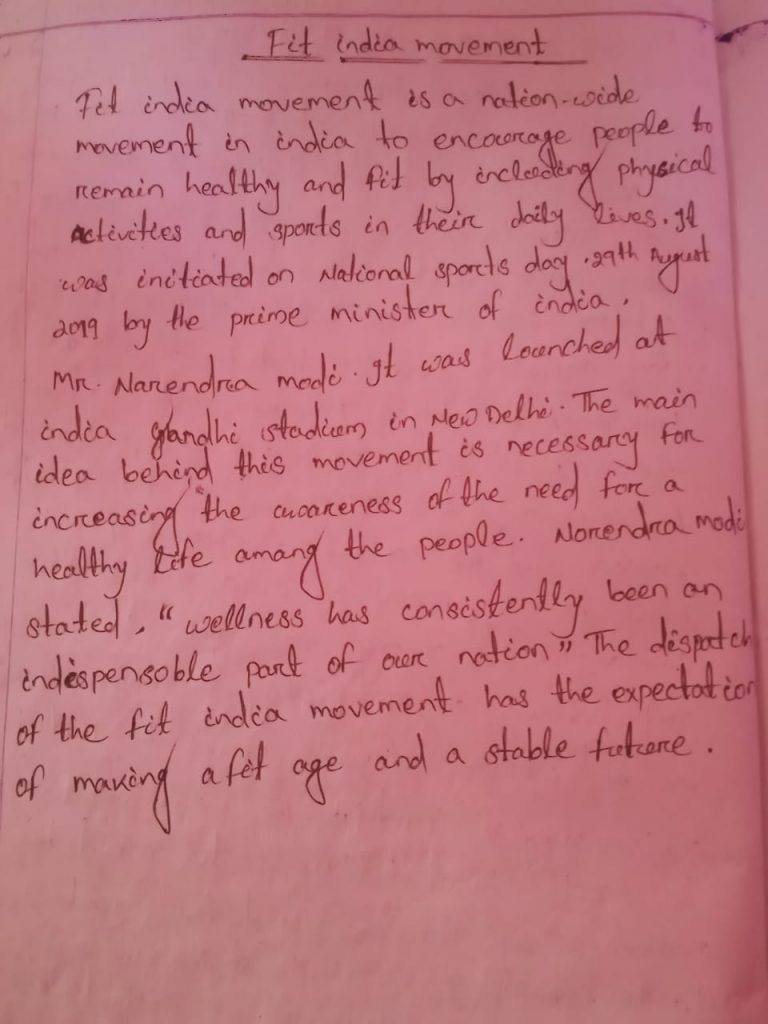 Fit india movement
Fit india movement is a nation-wide
movement in india to encourage people to
remain healthy and fit by including physical
activities and sports in their daily lives. It
was initiated on National sports day .29th August
2019 by the prime minister of india.
Mr. Narendra modi. It was launched at
india gandhi stadium in New Delhi. The main
idea behind this movement is necessary for
increasing "the awareness of the need for a
healthy life among the people. Narendra modi
stated, "wellness has consistently been an
indispensable part of our nation" The dispatch
of the fit india movement has the expectation
of making a fit age and a stable future.